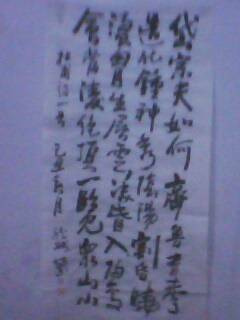 岱宗夫如何齊魯青未
造化鍾神秀陰陽割昏曉
盪胸生層雲決眥入歸鳥
會當凌絕頂一覽眾山小
杜甫詩一首